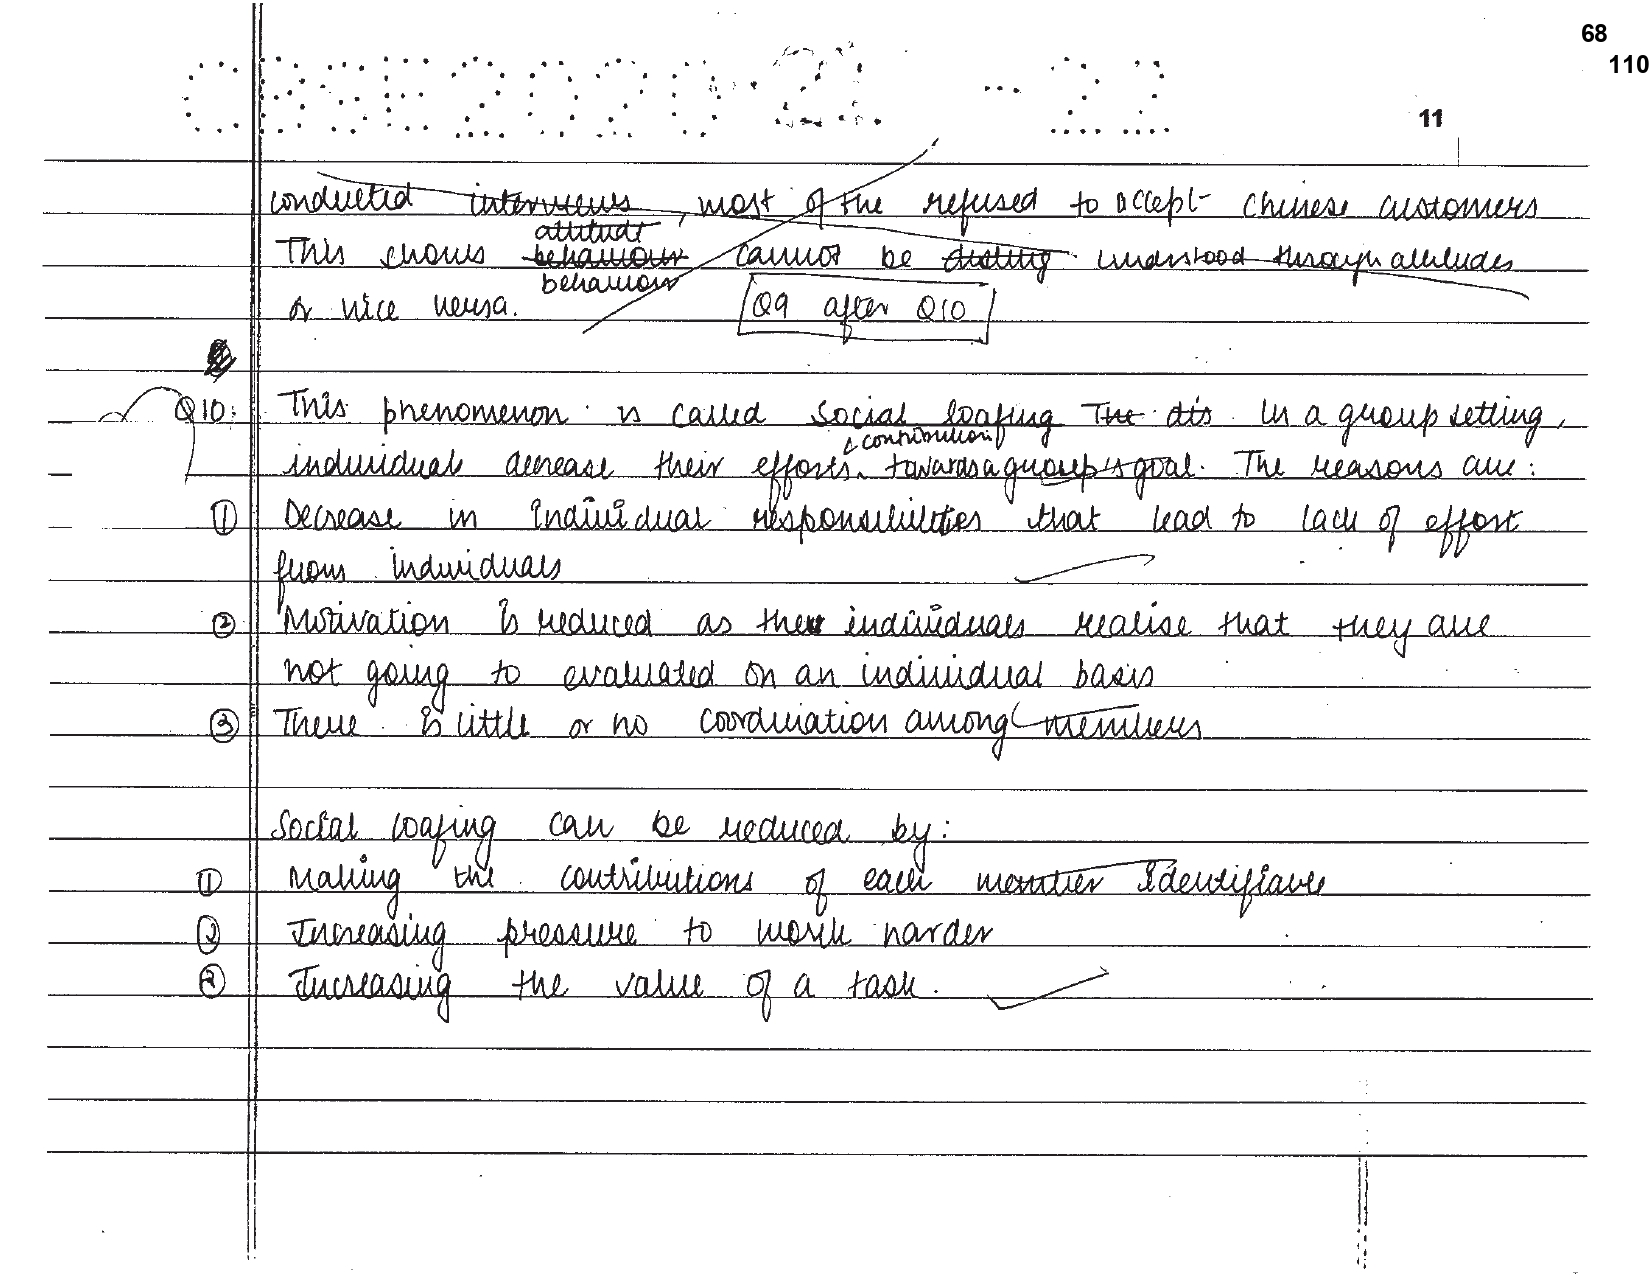 68
110
CBSE2020-21 -22
11
conducted interviews, most of the refused to accept chinese customers
This shows attitude behaviour behaviour cannot be understood through attitudes
or vice versa. Q9 after Q10
Q10. This phenomenon is called social loafing The dis In a group setting,
individuals decrease their efforts & contribution towards a group's goal. The reasons are:
① Decrease in individual responsibilities that lead to lack of effort
from individuals
② Motivation is reduced as the individuals realise that they are
not going to evaluated on an individual basis
③ There is little or no coordination among members
Social loafing can be reduced by:
① Making the contributions of each member identifiable
② Increasing pressure to work harder
③ Increasing the value of a task.